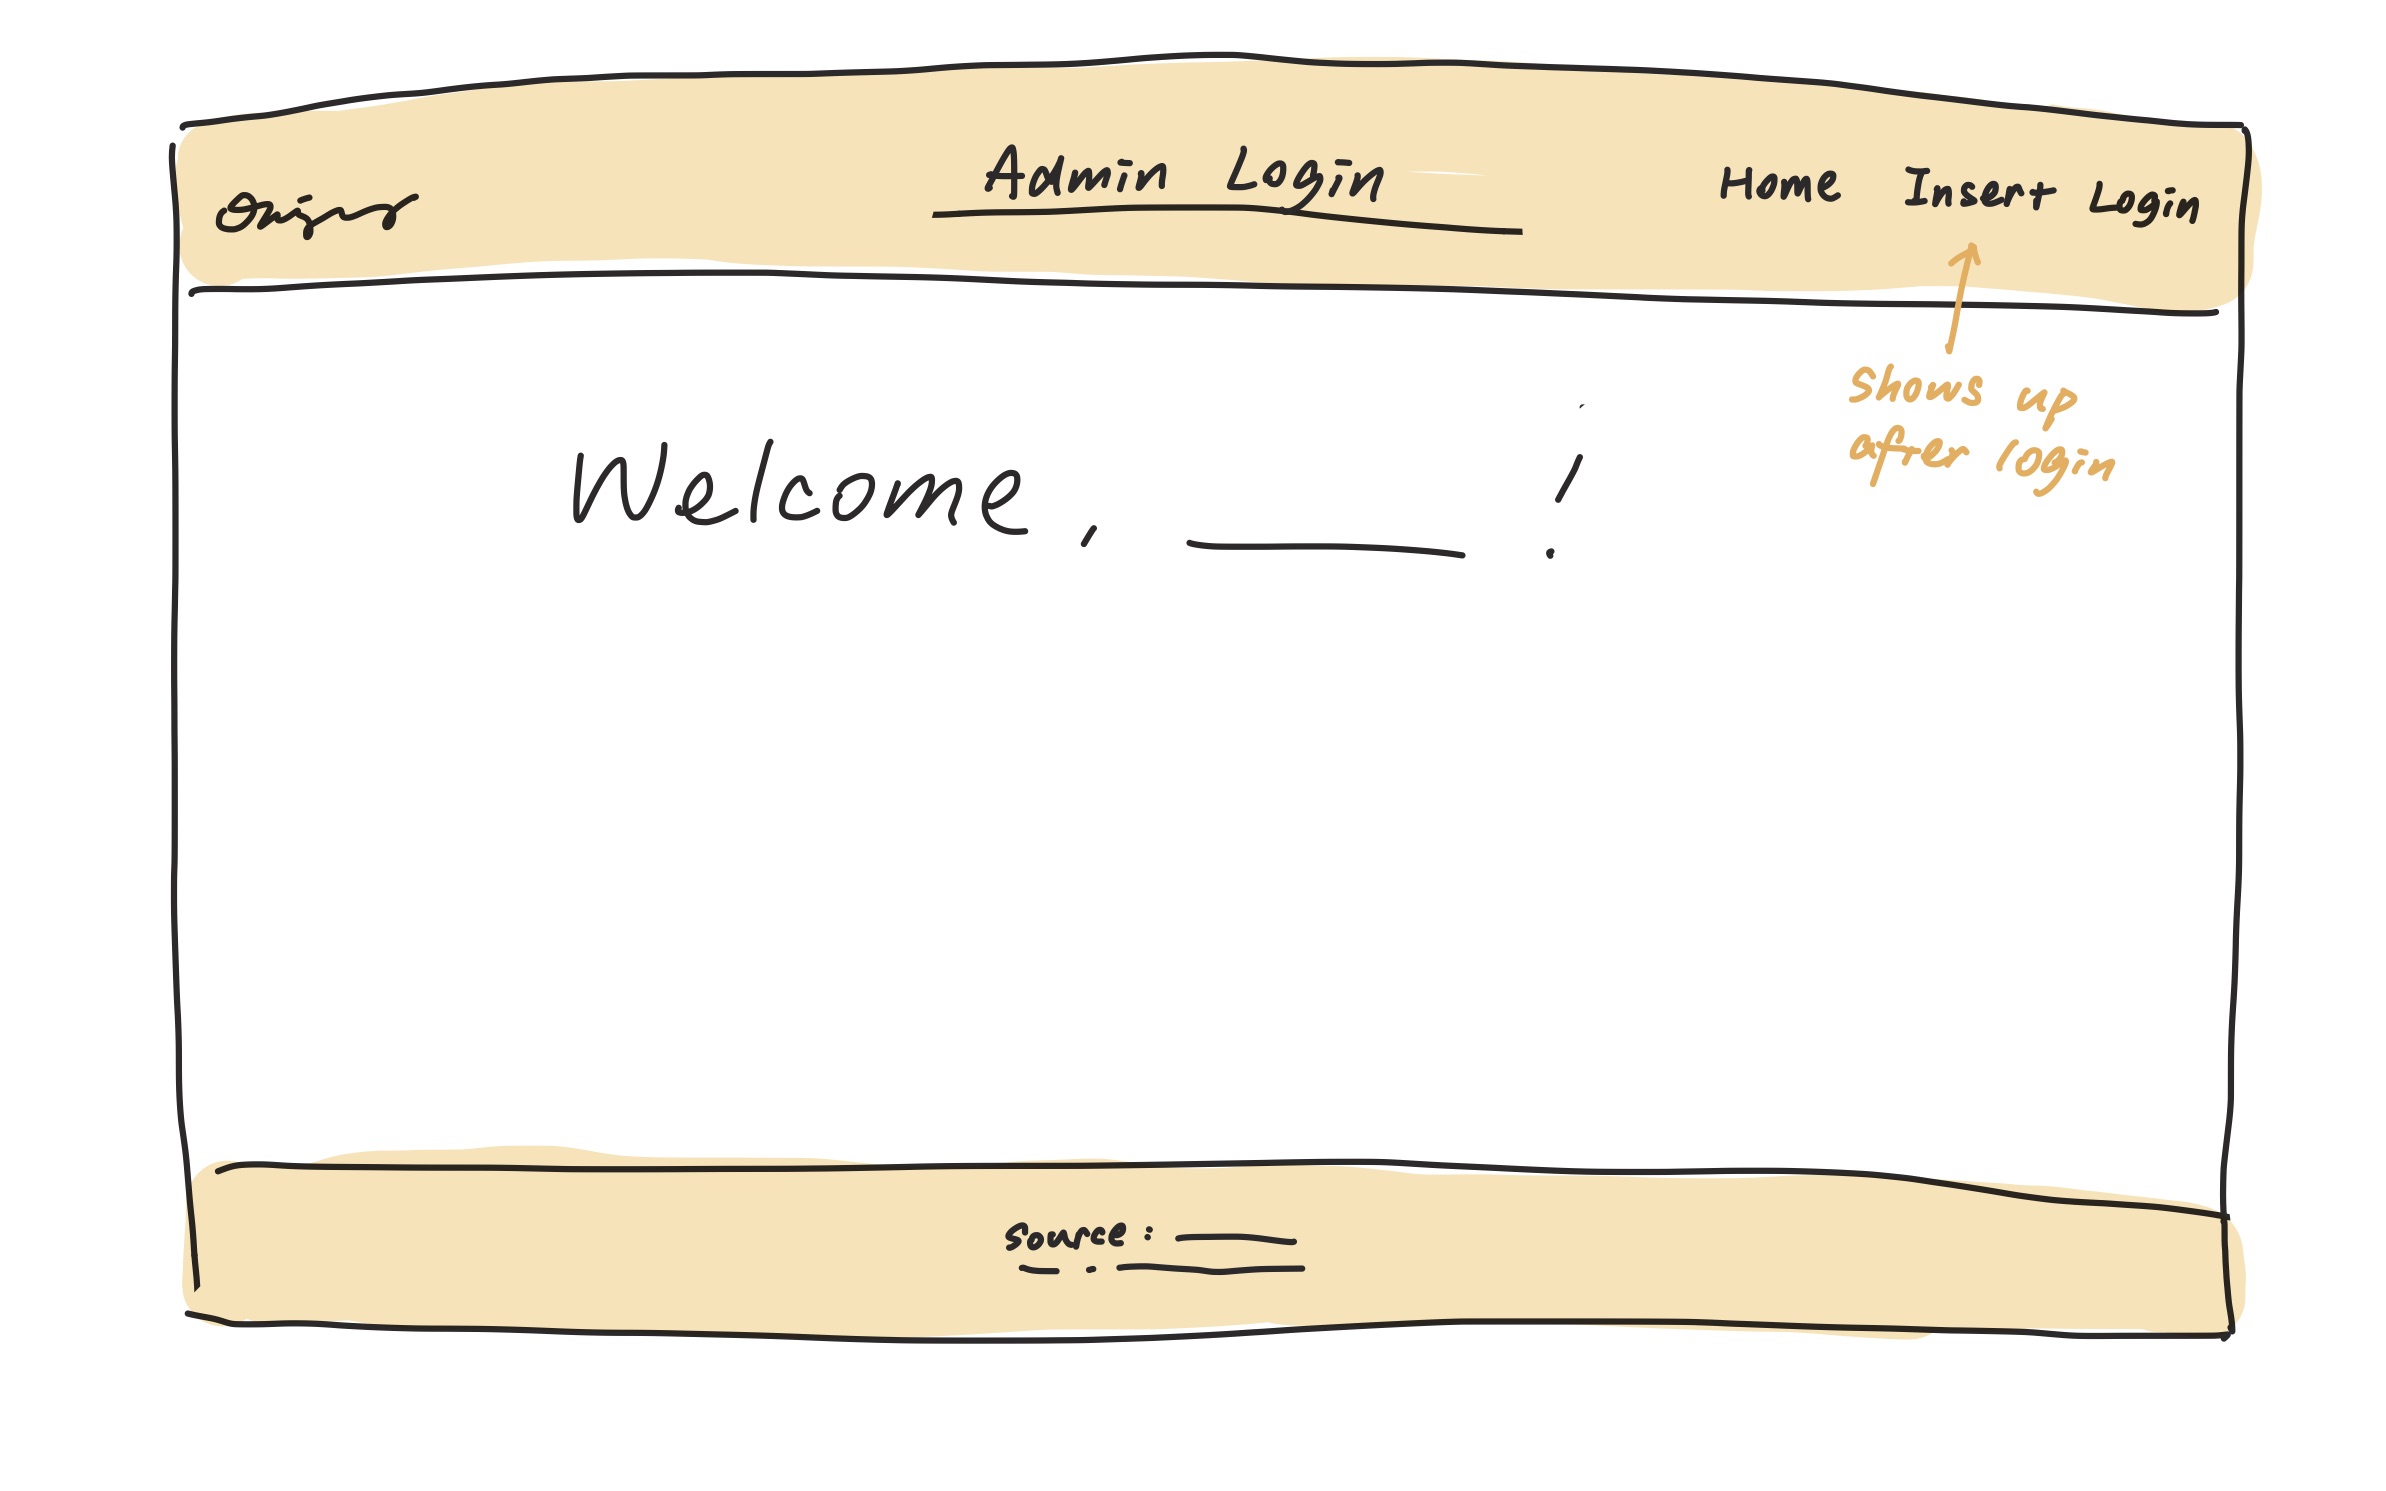 Admin Login
Home Insert Login
shows up
after login
Welcome, ______ !
source: ____